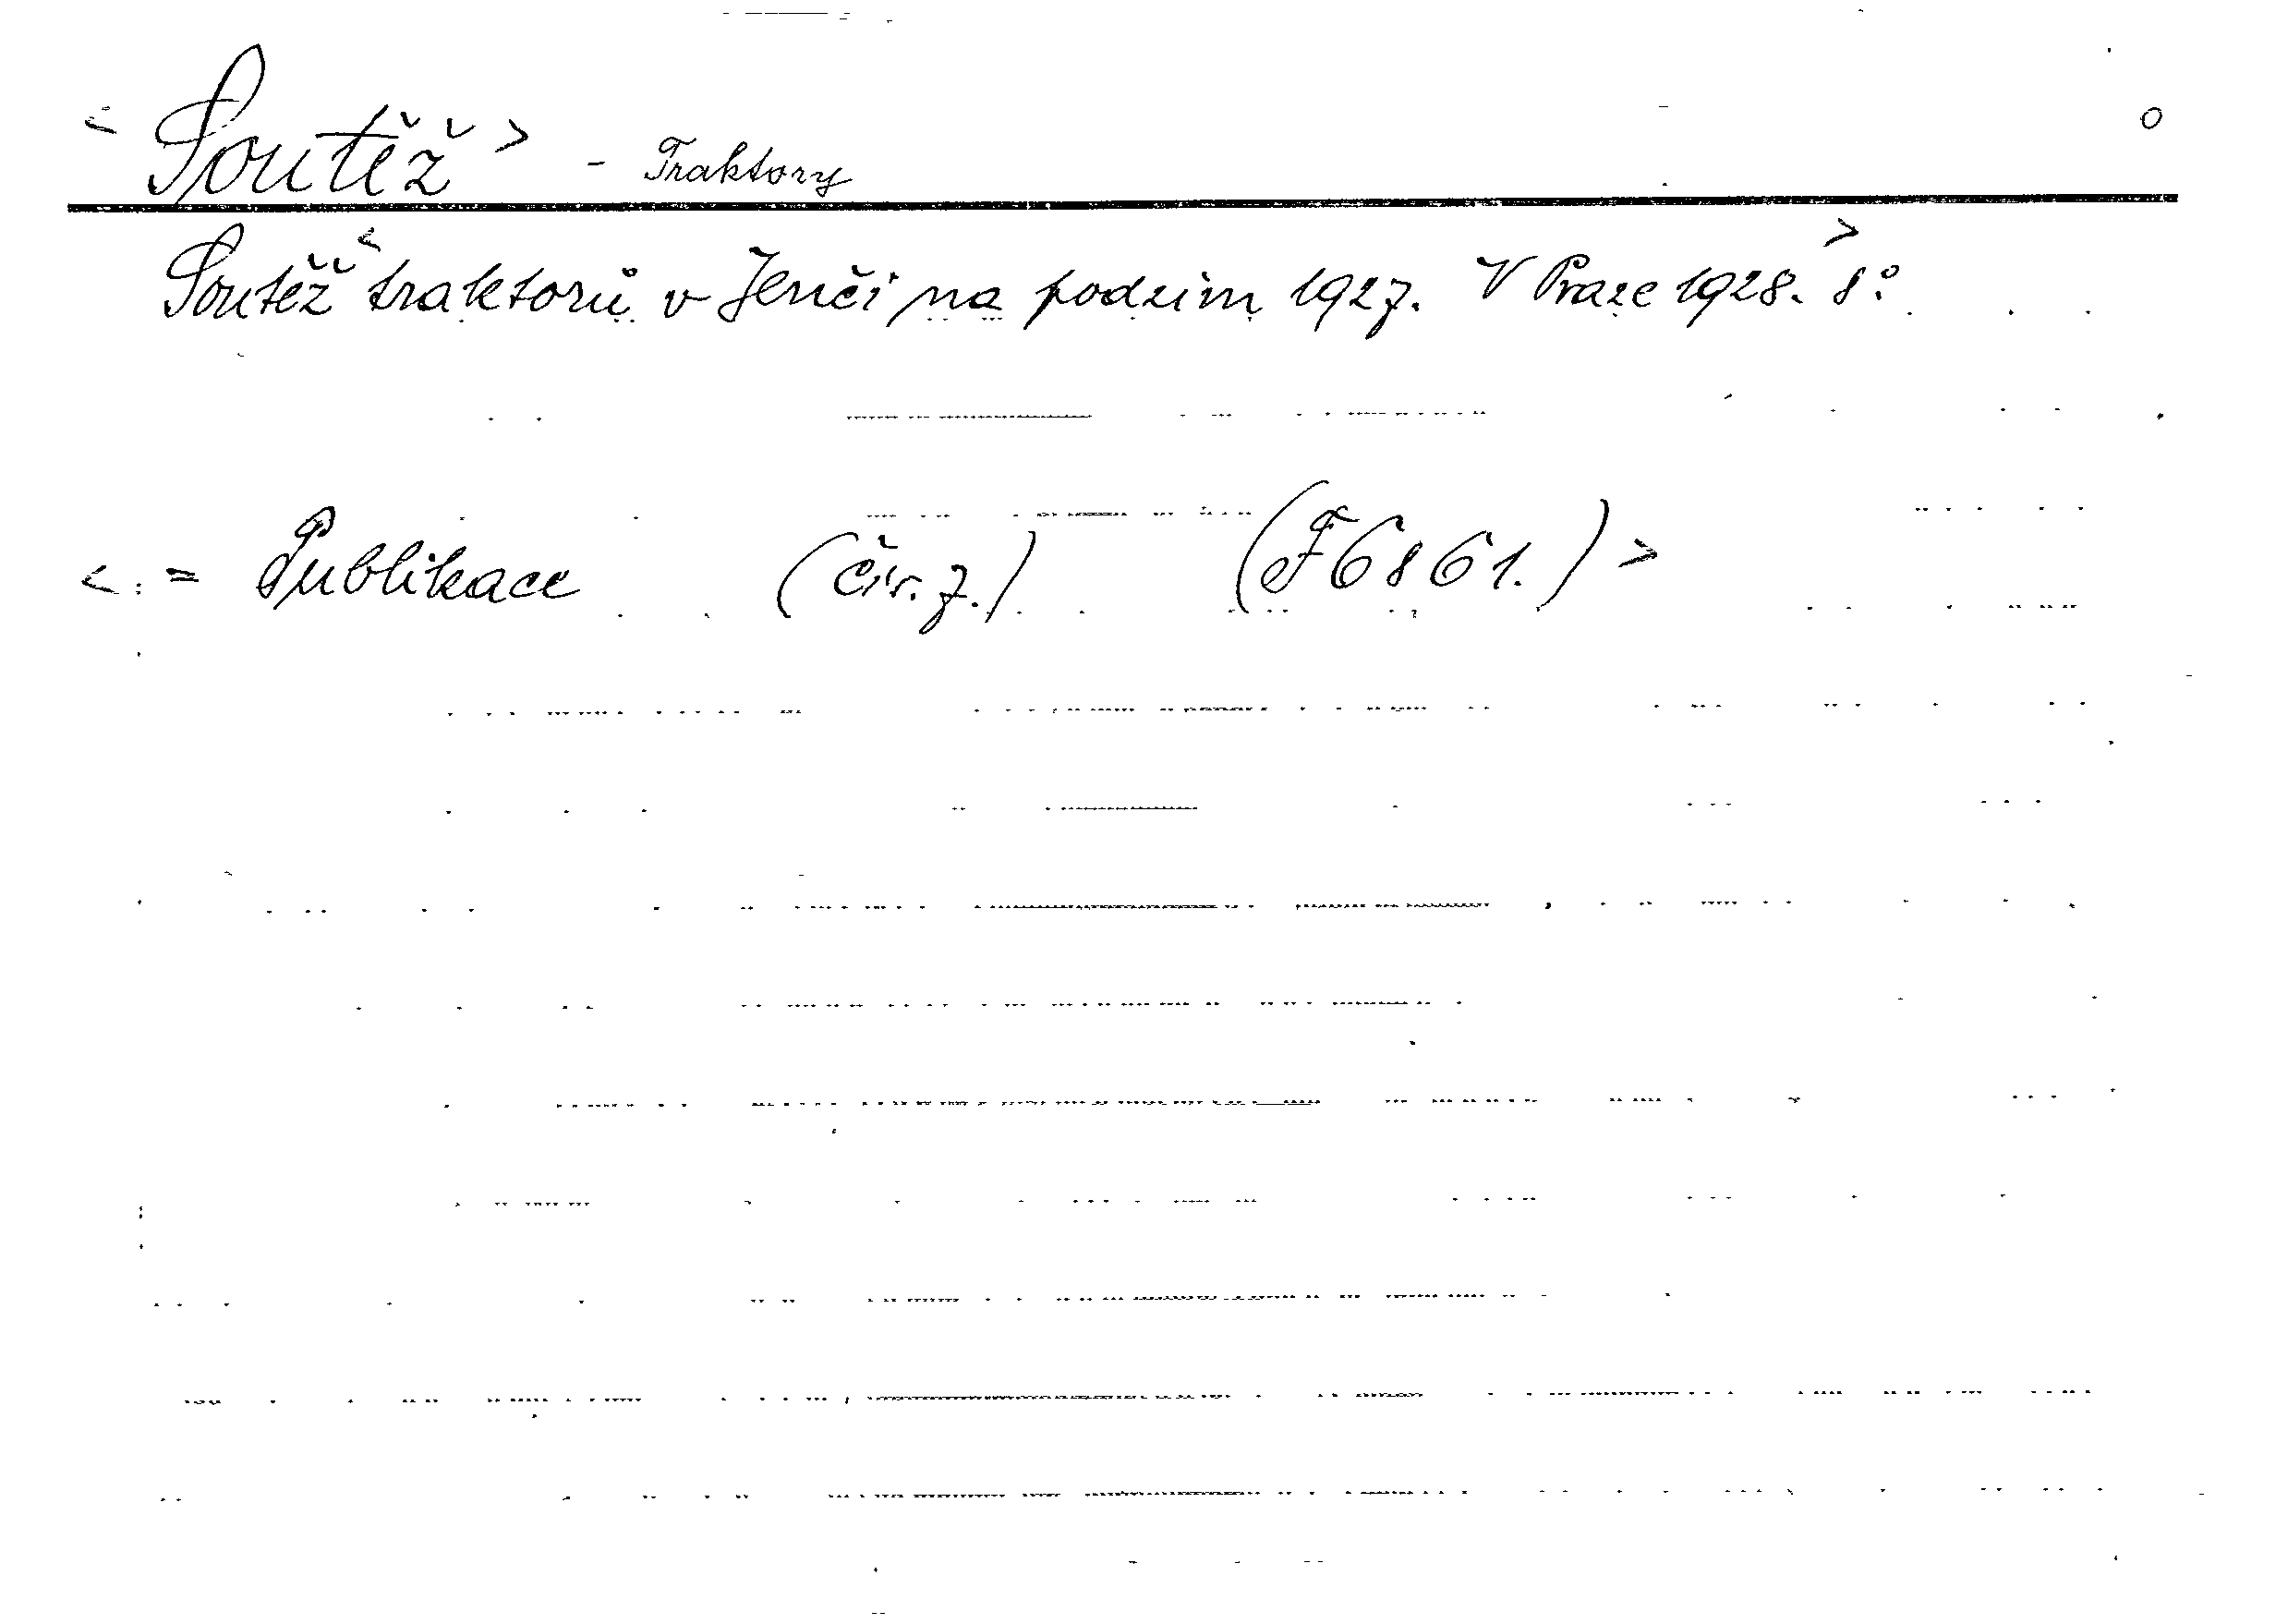 < Soutěž > - Traktory o
Soutěž < traktorů v Jenči na podzim 1927. V Praze 1928. > 8°.
< = Publikace (čís. 7.) (F 6861.) >